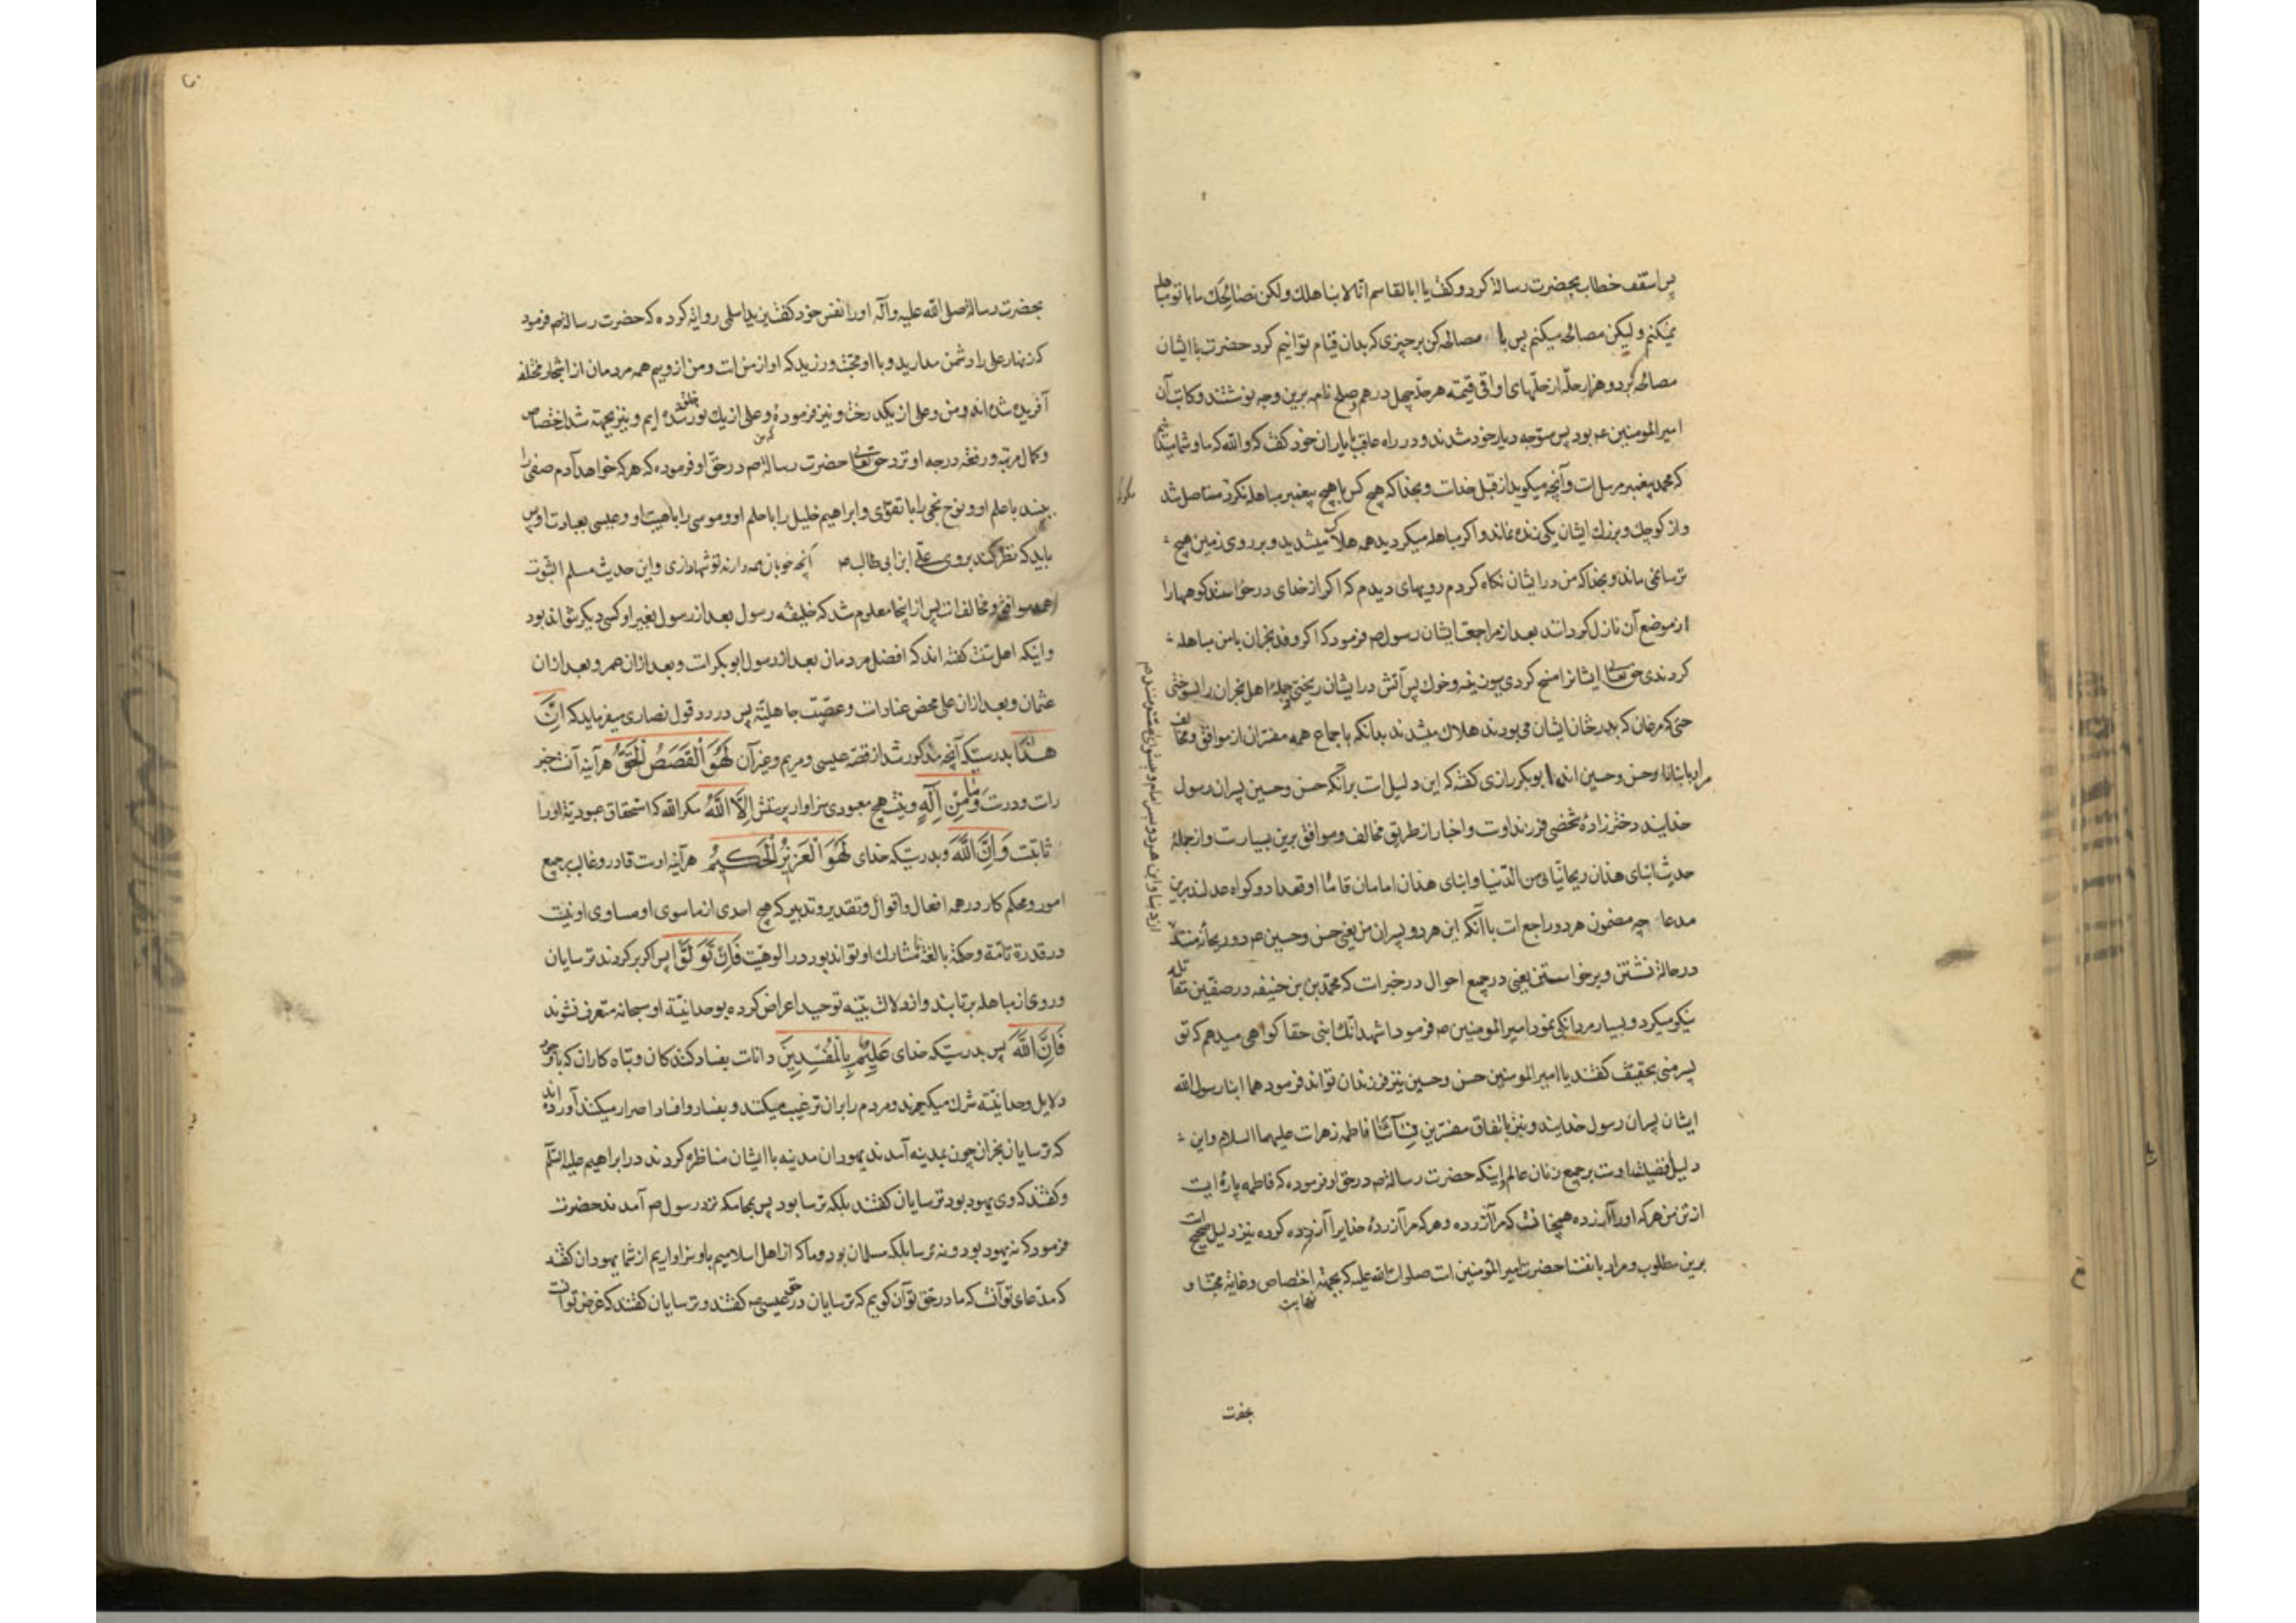 پس اسقف خطاب بحضرت رسالة کرد و کفت یا ابا القاسم انا لا نباهلك ولکن نصالحك ما با تو مباهله
نمیکنم ولیکن مصالحه میکنم پس با مصالحه کن بر چیزی که بدان قیام توانیم کرد حضرت با ایشان
مصالحه کرد و هزار حلّه از حلّهای اواقی قیمة هر حلّه چهل درهم و صلح نامه برین وجه نوشتند و کاتب آن
امیر المومنین عم بود پس متوجه دیار خود شدند و در راه عاقب با یاران خود کفت که والله که ما و شما میدانیم
که محمد پیغمبر مرسل ات و آنچه میکوید از قبل خدات و بخدا که هیچ کس با هیچ پیغمبر مباهله نکرد که مستاصل شد
و از کوچك و بزرك ایشان یکی زنده نماند و اکر مباهله میکردید همه هلاک میشدید و بر روی زمین هیچ
ترسا نمی ماند و بخدا که من در ایشان نکاه کردم رویهای دیدم که اکر از خدای درخواستند کوهها را
از موضع آن نازل کرداند بعد از مراجعت ایشان رسول ص فرمود که اکر وفد نجران با من مباهله
کردندی حق تعالی ایشانرا مسخ کردی بوزینه و خوك پس آتش در ایشان ریختی و جملۀ اهل نجران را بسوختی
حتی که مرغان که بدرختان ایشان می بودند هلاك میشدند بدانکه باجماع همه مفسّران از موافق و مخالف
مراد بابنائنا حسن و حسین اند ابو بکر رازی کفته که این دلیل ات بر آنکه حسن و حسین پسران رسول
خدایند و دختر زادۀ شخصی فرزند اوت و اخبار از طریق مخالف و موافق برین بسیارت و از جملۀ
حدیث ابنای هذان ریحانتای من الدّنیا و ابنای هذان امامان قاما او قعدا دو کواه عدلند برین
مدعا چه مضمون هر دو راجع ات با آنکه این هر دو پسران من یعنی حسن و حسین ص دو ریحانۀ منند
در حالۀ نشستن و برخواستن یعنی در جمیع احوال در خبرات که محمّد بن حنیفه در صفّین مقاتله
نیکو میکرد و بسیار مردانکی نمود امیر المومنین ص فرمود اشهد انّك ابنی حقا کواهی میدهم که تو
پسر منی بحقیقت کفتند یا امیر المومنین حسن و حسین نیز فرزندان تواند فرمود هما ابنا رسول الله
ایشان پسران رسول خدایند و نیز باتفاق مفسّرین نسائنا فاطمه زهرات علیهما السلام و این
دلیل افضیلت اوت بر جمیع زنان عالم و اینکه حضرت رسالة ص در حق او فرموده که فاطمه پارۀ ایت
از تن من هر که او را آزرده همچنانت که مرا آزرده و هر که مرا آزردۀ خدایرا آزرده کرده نیز دلیل صحیح ات
برین مطلوب و مراد بانفسنا حضرت امیر المؤمنین ات صلوات الله علیه که بجهة اختصاص و غایة محبّة او
نهایت
بحضرت
بحضرت رسالة صلی الله علیه و آله او را نفس خود کفت بریده اسلمی روایة کرده که حضرت رسالة ص فرمود
که زنهار علی را دشمن مدارید و با او محبّت ورزید که او از من ات و من از ویم همه مردمان از اشجار مختلفه
آفریده شده اند و من و علی از یکدرخت و نیز فرموده من و علی از یك نور خلق شده ایم و نیز بجهة شدة اختصاص
و کمال مرتبه و رفعة درجه او نزد حق تعالی حضرت رسالة ص در حق او فرموده که هر که خواهد آدم صفی را
بیند با علم او و نوح نجی را با تقوای و ابراهیم خلیل را با حلم او و موسی را با هیبت او و عیسی بعبادت او پس
باید که نظر کند بروی علی ابن ابی طالب ص آنچه خوبان همه دارند تو تنها داری و این حدیث مسلم الثبوت
همه موافق و مخالف ات پس از اینجا معلوم شد که خلیفه رسول بعد از رسول بغیر او کسی دیکر نتواند بود
و اینکه اهل سنت کفته اند که افضل مردمان بعد از رسول ابو بکرات و بعد از ان عمر و بعد از ان
عثمان و بعد از ان علی محض عنادات و عصبیّت جاهلیّة پس در رد قول نصاری میفرماید که اِنَّ
هٰذَا بدرستیکه آنچه مذکور شد از قصّه عیسی و مریم و غیر آن لَهُوَ الْقَصَصُ الْحَقُّ هر آینه آنت خبر
رات و درت وَمَا مِنْ اِلٰهٍ و نیت هیچ معبودی سزاوار پرستش اِلَّا اللّٰهُ مکر الله که استحقاق عبودیّة او را
ثابتت وَاِنَّ اللّٰهَ و بدرستیکه خدای لَهُوَ الْعَزِیزُ الْحَکِیمُ هر آینه اوت قادر و غالب بر جمیع
امور و محکم کار در همه افعال و اقوال و تقدیر و تدبیر که هیچ احدی از ماسوی او مساوی او نیت
در قدرة تامّة و حکمة بالغة تا مشارك او تواند بود در الوهیّت فَاِنْ تَوَلَّوْا پس اکر بر کردند ترسایان
و روی از مباهله برتابند و از دلائل بیّنه توحید اعراض کرده بوحدانیّة او سبحانه معترف نشوند
فَاِنَّ اللّٰهَ پس بدرستیکه خدای عَلِیمٌ بِالْمُفْسِدِینَ دانات بفساد کنندکان و تباه کاران که با وجود
دلایل وحدانیّة شرك میکیرند و مردم را بر ان ترغیب میکنند و بفساد و افساد اصرار میکنند آورده اند
که ترسایان نجران چون بمدینه آمدند یهودان مدینه با ایشان مناظره کردند در ابراهیم علیه السّلم
و کفتند که وی یهود بود ترسایان کفتند بلکه ترسا بود پس بمحاکمه نزد رسول ص آمدند حضرت
فرمود که نه یهود بود و نه ترسا بلکه مسلمان بود و ما که از اهل اسلامیم باو سزاواریم از شما یهودان کفتند
که مدّعای تو آنت که ما در حق تو آن کوییم که ترسایان در حق عیسی عم کفتند و ترسایان کفتند که غرض تو انت